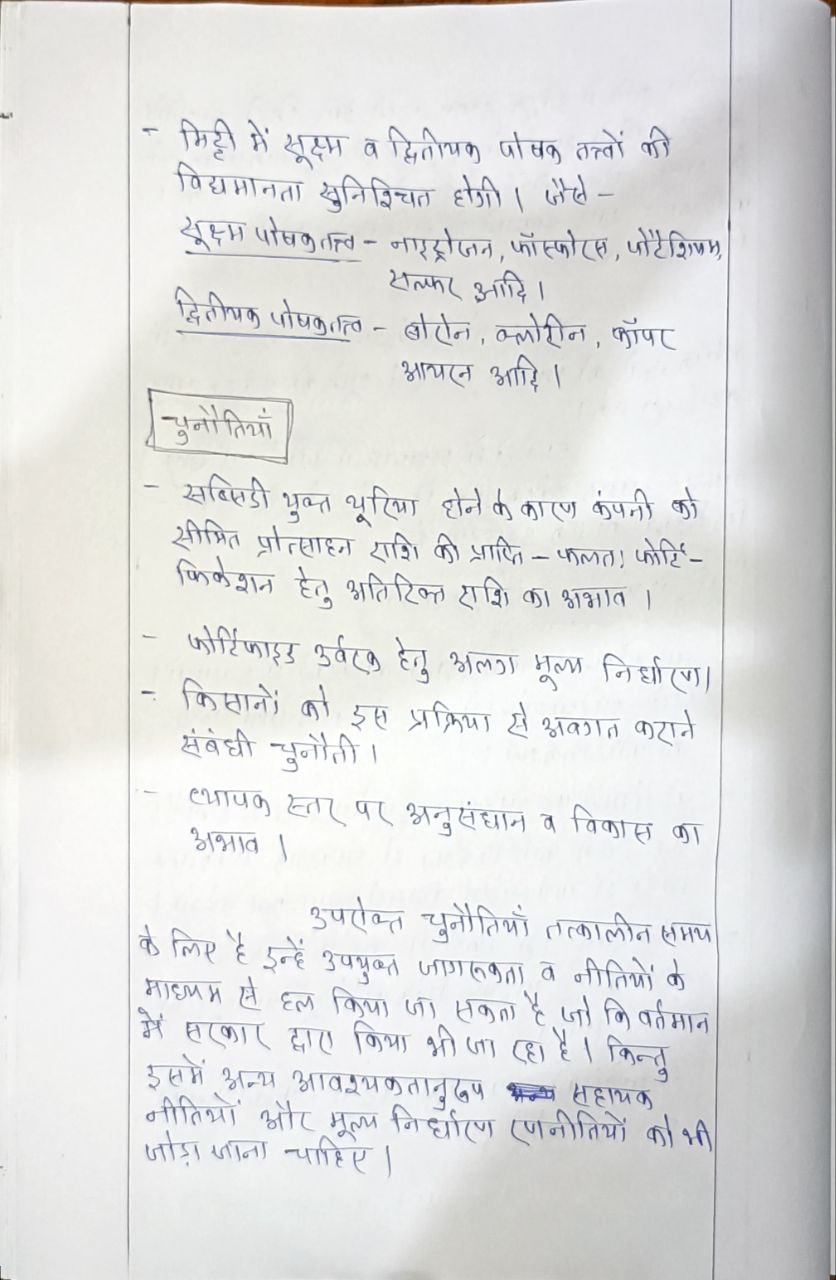 - मिट्टी में सूक्ष्म व द्वितीयक पोषक तत्त्वों की
विद्यमानता सुनिश्चित होगी। जैसे -
सूक्ष्म पोषकतत्त्व - नाइट्रोजन, फॉस्फोरस, पोटैशियम,
सल्फर आदि।
द्वितीयक पोषकतत्त्व - बोरोन, क्लोरीन, कॉपर
आयरन आदि।
चुनौतियाँ
- सब्सिडी युक्त यूरिया होने के कारण कंपनी को
सीमित प्रोत्साहन राशि की प्राप्ति - फलत: फोर्टि-
फिकेशन हेतु अतिरिक्त राशि का अभाव।
- फोर्टिफाइड उर्वरक हेतु अलग मूल्य निर्धारण।
- किसानों को इस प्रक्रिया से अवगत कराने
संबंधी चुनौती।
- व्यापक स्तर पर अनुसंधान व विकास का
अभाव।
उपरोक्त चुनौतियाँ तत्कालीन समय
के लिए है इन्हें उपयुक्त जागरूकता व नीतियों के
माध्यम से हल किया जा सकता है जो कि वर्तमान
में सरकार द्वारा किया भी जा रहा है। किन्तु
इसमें अन्य आवश्यकतानुरूप सहायक
नीतियों और मूल्य निर्धारण रणनीतियों को भी
जोड़ा जाना चाहिए।